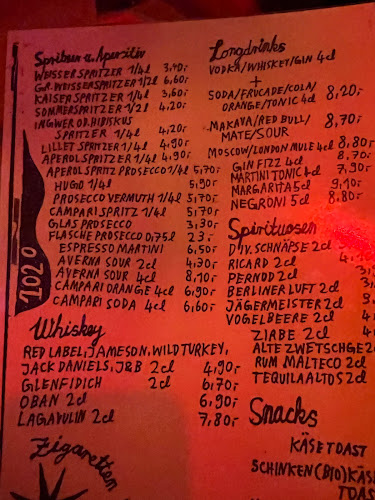 Spritzer u. Aperitiv
WEISSER SPRITZER 1/4l 3,40.-
GR. WEISSER SPRITZER 1/2l 6,60.-
KAISER SPRITZER 1/4l 3,60.-
SOMMERSPRITZER 1/2l 4,20.-
INGWER OD. HIBISKUS
SPRITZER 1/4l 4,20.-
LILLET SPRITZER 1/4l 4,90.-
APEROL SPRITZER 1/4l 4,90.-
APEROL SPRITZ PROSECCO 1/4l 5,70.-
HUGO 1/4l 5,90.-
PROSECCO VERMUTH 1/4l 5,70.-
CAMPARI SPRITZ 1/4l 5,70.-
GLAS PROSECCO 3,30.-
FLASCHE PROSECCO 0,75l 23.-
ESPRESSO MARTINI 6,50.-
AVERNA SOUR 2cl 4,30.-
AVERNA SOUR 4cl 8,10.-
CAMPARI ORANGE 4cl 6,90.-
CAMPARI SODA 4cl 6,60.-
1020
Whiskey
RED LABEL, JAMESON, WILD TURKEY,
JACK DANIELS, J&B 2cl 4,90.-
GLENFIDICH 2cl 6,70.-
OBAN 2cl 6,90.-
LAGAVULIN 2cl 7,80.-
Zigaretten
Longdrinks
VODKA/WHISKEY/GIN 4cl
+
SODA/FRUCADE/COLA/
ORANGE/TONIC 4cl 8,20.-
MAKAVA/RED BULL/
MATE/SOUR 8,70.-
MOSCOW/LONDON MULE 4cl 8,80.-
GIN FIZZ 4cl 8.70.-
MARTINI TONIC 4cl 7,90.-
MARGARITA 5cl 9,10.-
NEGRONI 5cl 8.80.-
Spirituosen
DIV. SCHNÄPSE 2cl
RICARD 2cl
PERNOD 2cl
BERLINER LUFT 2cl
JÄGERMEISTER 2cl
VOGELBEERE 2cl
ZIRBE 2cl
ALTE ZWETSCHGE 2cl
RUM MALTECO 2cl
TEQUILA ALTOS 2cl
Snacks
KÄSETOAST
SCHINKEN (BIO) KÄSE
TOAST